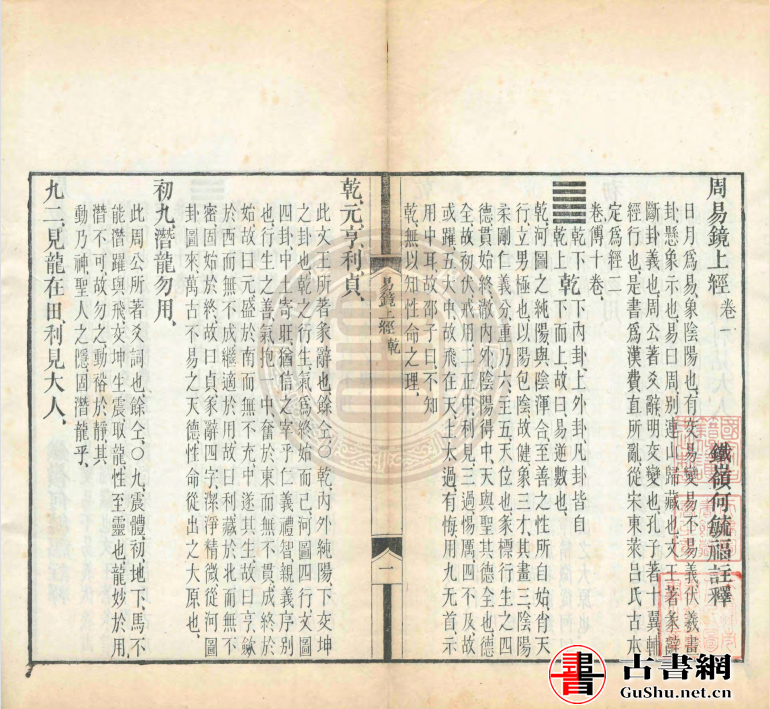 周易鏡上經 卷一
鐵嶺何毓福註釋
日月爲易象陰陽也有交易變易不易義伏羲畫
卦懸象示也易曰周別連山歸藏也文王著彖辭
斷卦義也周公著爻辭明交變也孔子著十翼輔
經行也是書爲漢費直所亂從宋東萊呂氏古本
定爲經二
卷傳十卷
乾下 乾 下內卦上外卦凡卦皆自
乾上 下而上故曰易逆數也
乾河圖之純陽與陰渾合至善之性所自始肖天
行立男極也以陽包陰故健象三才其畫三陰陽
柔剛仁義分重乃六主五天位也彖標行生之四
德貫始終澈內外陰陽得中天與聖其德全也德
全故初伏戒用二正中利見三過惕厲四不及故
或躍五大中故飛在天上太過有悔用九无首示
用中耳故邵子曰不知
乾無以知性命之理
易鏡上經 乾
一
乾元亨利貞
此文王所著彖辭也餘仝○乾內外純陽下交坤
之卦也乾之行生氣爲終始而已河圖四行文圖
四卦中土寄旺猶信之宰乎仁義禮智親義序別
也行生之善氣抱一中奔於東而無不貫成終於
始故曰元盛於南而無不充中遂其生故曰亨斂
於西而無不成繼適於用故曰利藏於北而無不
密固始於終故曰貞彖辭四字潔淨精微從河圖
卦圖來萬古不易之天德性命從出之大原也
初九潛龍勿用
此周公所著爻詞也餘仝○九震體初地下馬不
能潛躍與飛交坤生震取龍性至靈也龍妙於用
潛不可故勿之動裕於靜其
動乃神聖人之隱固潛龍乎
九二見龍在田利見大人
古書網
GuShu.net.cn